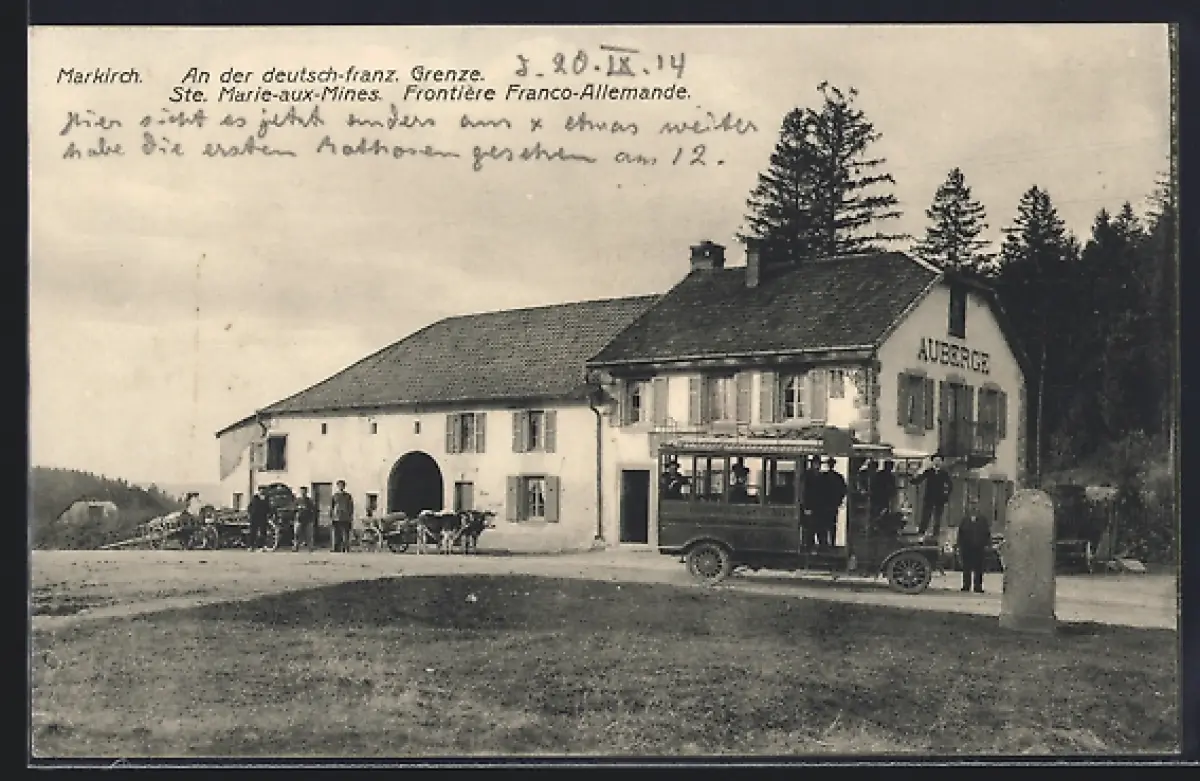 Markirch. An der deutsch-franz. Grenze. J. 20.IX.14
Ste. Marie-aux-Mines. Frontière Franco-Allemande.
Hier sieht es jetzt anders aus x etwas weiter
habe die ersten Rothosen gesehen am 12.
AUBERGE